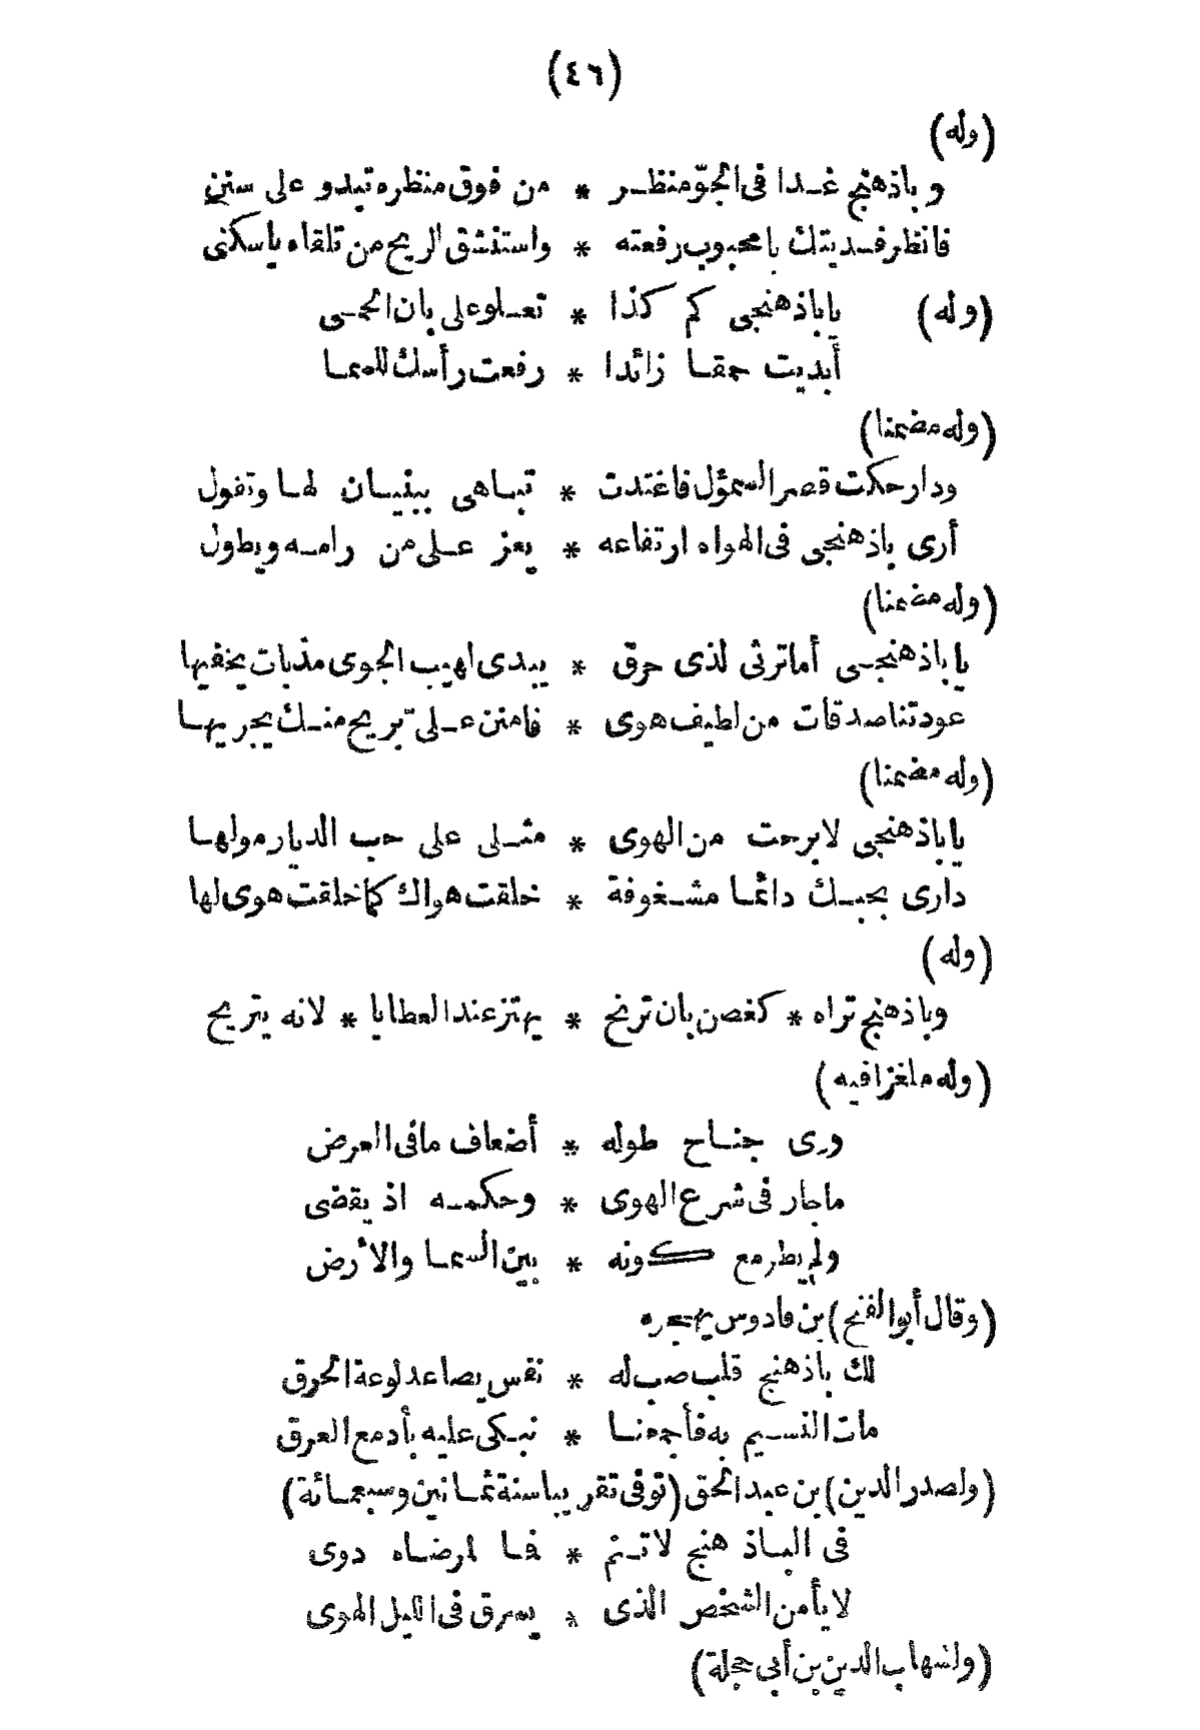 (٤٦)
(وله)
وباذهنج غدا فى الجوّ منظر * من فوق منظره تبدو على سنن
فانظر فديتك يا محبوب رفعته * واستنشق الريح من تلقاه ياسكنى
(وله) ياباذهنجى كم كذا * تعلو على بان الحمى
أبديت حمقا زائدا * رفعت رأسك للسما
(وله مضمنا)
ودار حكت قصر السمؤل فاغتدت * تباهى ببنيان لها وتقول
أرى باذهنجى فى الهواه ارتفاعه * يعز على من رامه ويطول
(وله مضمنا)
ياباذهنجى أماترثى لذى حرق * يبدى لهيب الجوى مذبات يخفيها
عودتنا صدقات من لطيف هوى * فامنن على بريح منك يجريها
(وله مضمنا)
ياباذهنجى لابرحت من الهوى * مثلى على حب الديار مولها
دارى بحبك دائما مشغوفة * خلقت هواك كما خلقت هوى لها
(وله)
وباذهنج تراه * كغصن بان ترنح * يهتز عند العطايا * لانه يتريح
(وله ملغزا فيه)
وذى جناح طوله * أضعاف مافى العرض
ماجار فى شرع الهوى * وحكمه اذ يقضى
ولم يطر مع كونه * بين السما والأرض
(وقال أبوالفتح) بن قادوس يهجره
لك باذهنج قلب صب له * نفس يصاعد لوعة الحرق
مات النسيم به فأجمعنا * نبكى عليه بأدمع العرق
(ولصدر الدين) بن عبد الحق (توفى تقريبا سنة ثمانين وسبعمائة)
فى الباذ هنج لاتنم * فما لمرضاه دوى
لا يأمن الشخص الذى * يسرق فى الليل الهوى
(ولشهاب الدين بن أبى حجلة)